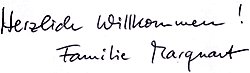 Herzlich Willkommen!
Familie Marquart